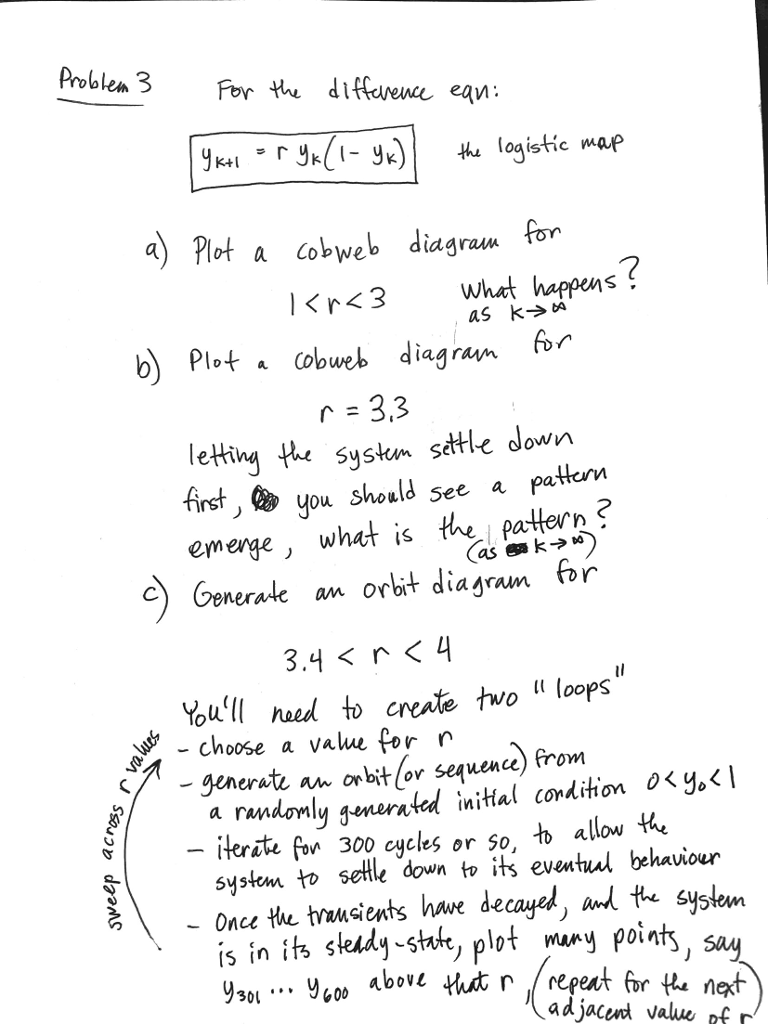 Problem 3 For the difference eqn:
y_{k+1} = r y_k (1 - y_k) the logistic map
a) Plot a cobweb diagram for
1 < r < 3 What happens?
as k → ∞
b) Plot a cobweb diagram for
r = 3.3
letting the system settle down
first, you should see a pattern
emerge, what is the pattern?
(as k → ∞)
c) Generate an orbit diagram for
3.4 < r < 4
You'll need to create two "loops"
- choose a value for r
- generate an orbit (or sequence) from
a randomly generated initial condition 0 < y_0 < 1
- iterate for 300 cycles or so, to allow the
system to settle down to its eventual behaviour
- Once the transients have decayed, and the system
is in its steady-state, plot many points, say
y_{301} ... y_{600} above that r, (repeat for the next
adjacent value of r
sweep across r values